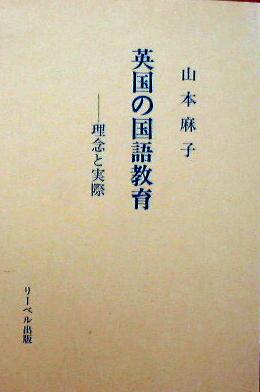 山本麻子
英国の国語教育
――理念と実際
リーベル出版